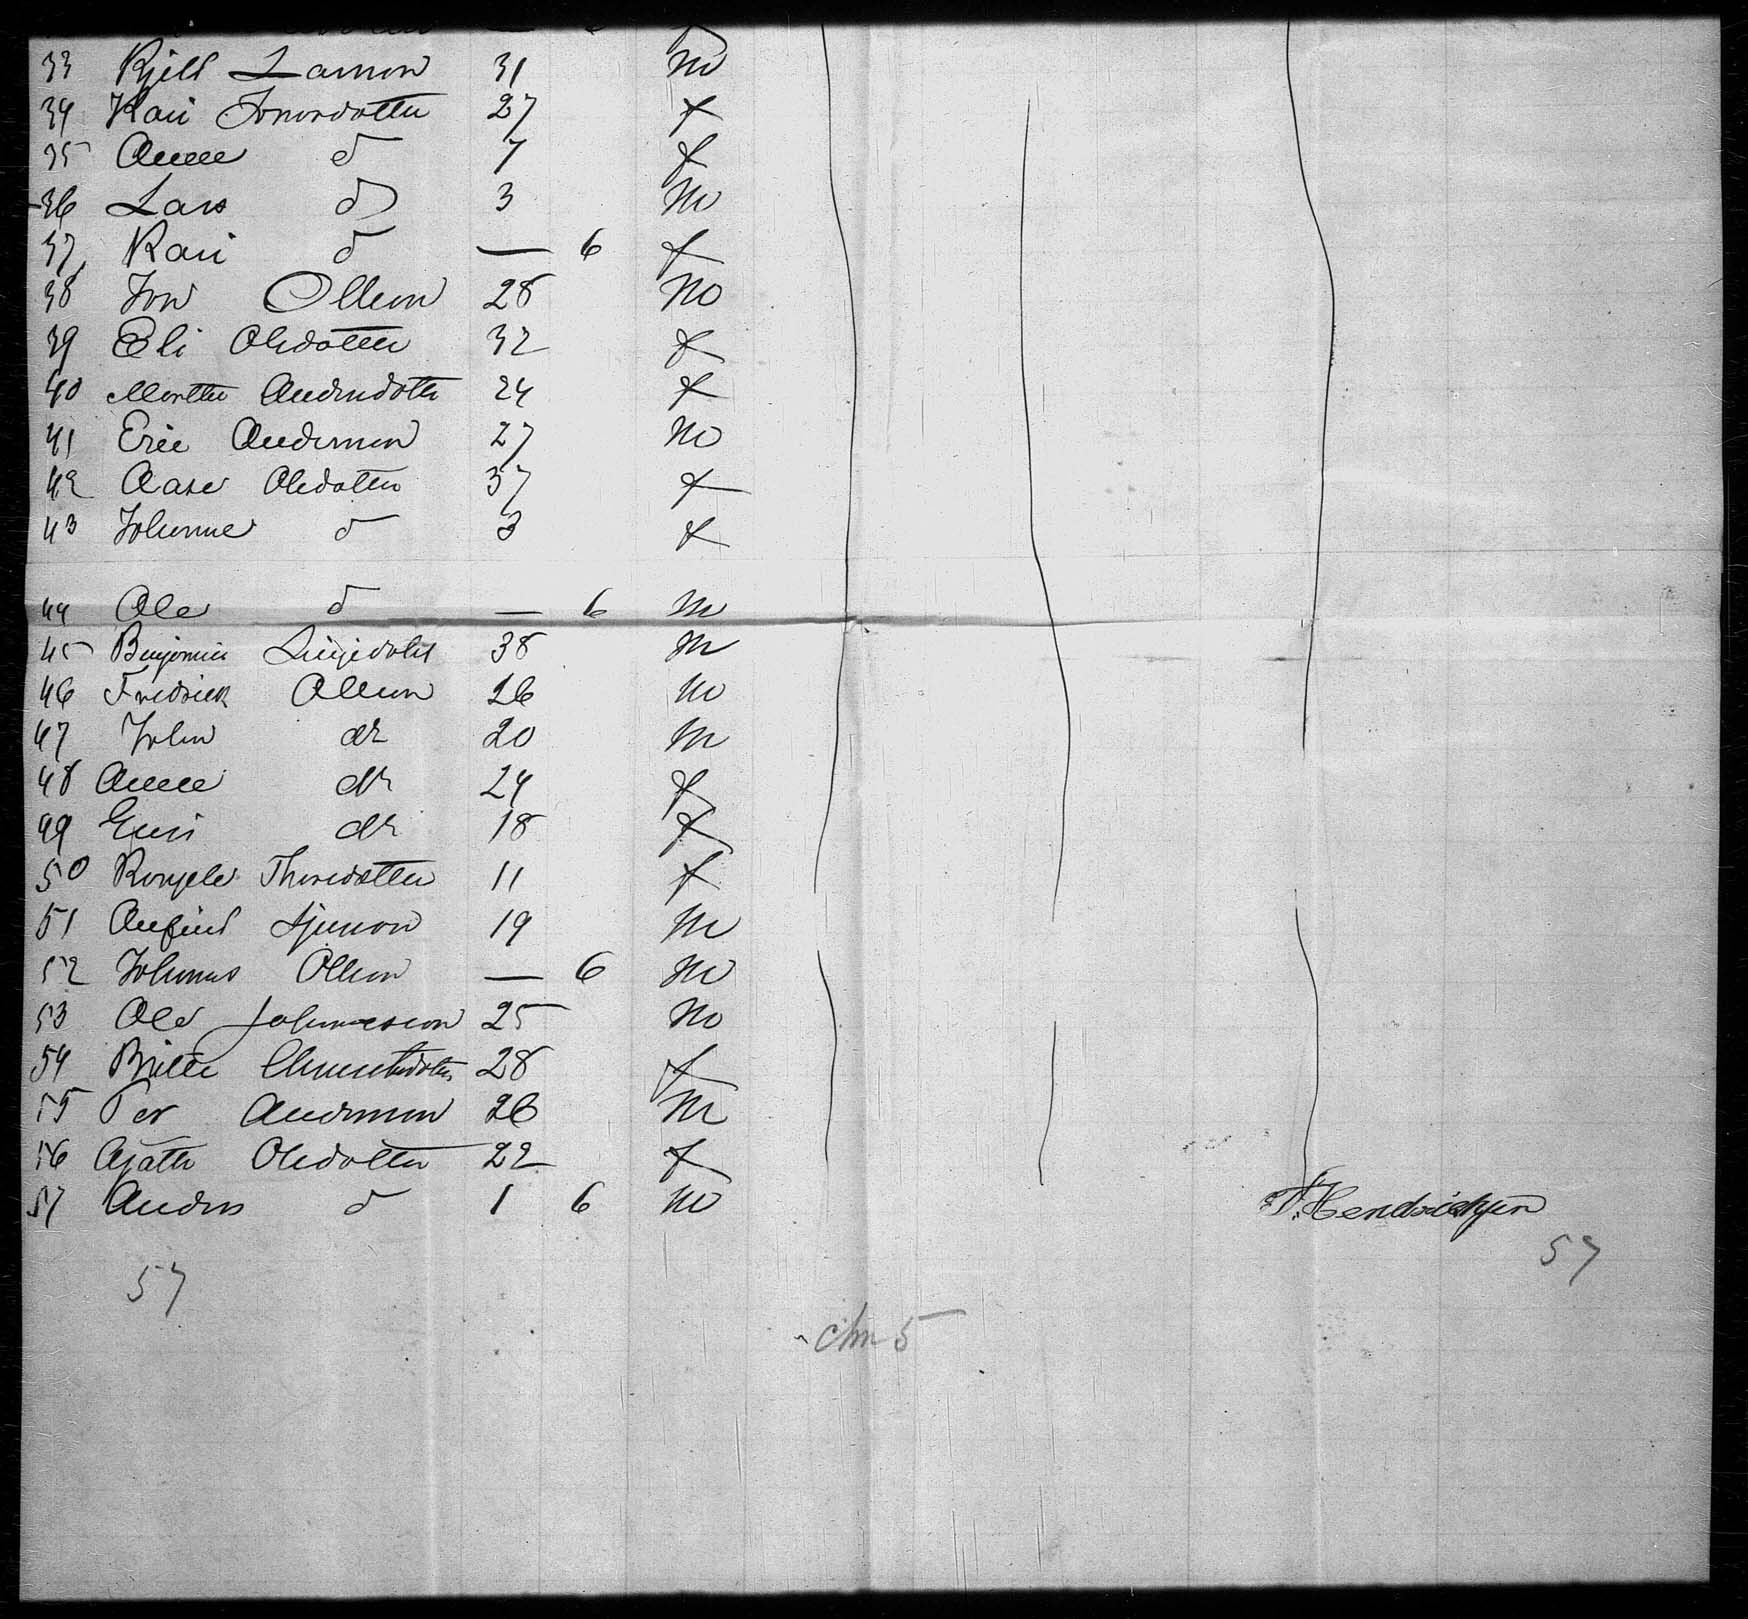 33 Kjell Larson 31 m
34 Kari Jonsdotter 27 f
35 Anne d 7 f
36 Lars d 3 m
37 Kari d — 6 f
38 Jon Olleson 28 m
39 Eli Olsdotter 32 f
40 Marthe Andersdotter 24 f
41 Eric Anderson 27 m
42 Aase Olsdotter 37 f
43 Johanne d 3 f
44 Ole d — 6 m
45 Benjamin 38 m
46 Fredrick Olleson 26 m
47 John do 20 m
48 Anne do 24 f
49 Guri do 18 f
50 Thorsdotter 11 f
51 Anfind 19 m
52 Johannes Olleson — 6 m
53 Ole Johannesson 25 m
54 Britte 28 f
55 Per Anderson 26 m
56 Agathe Olsdotter 22 f
57 Anders d 1 6 m
Hendricksen
57
57
chn 5